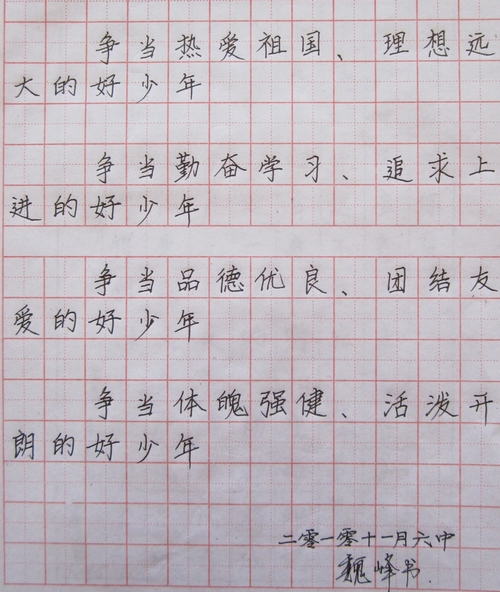 争当热爱祖国、理想远
大的好少年
争当勤奋学习、追求上
进的好少年
争当品德优良、团结友
爱的好少年
争当体魄强健、活泼开
朗的好少年
二零一零十一月六中
魏峰书